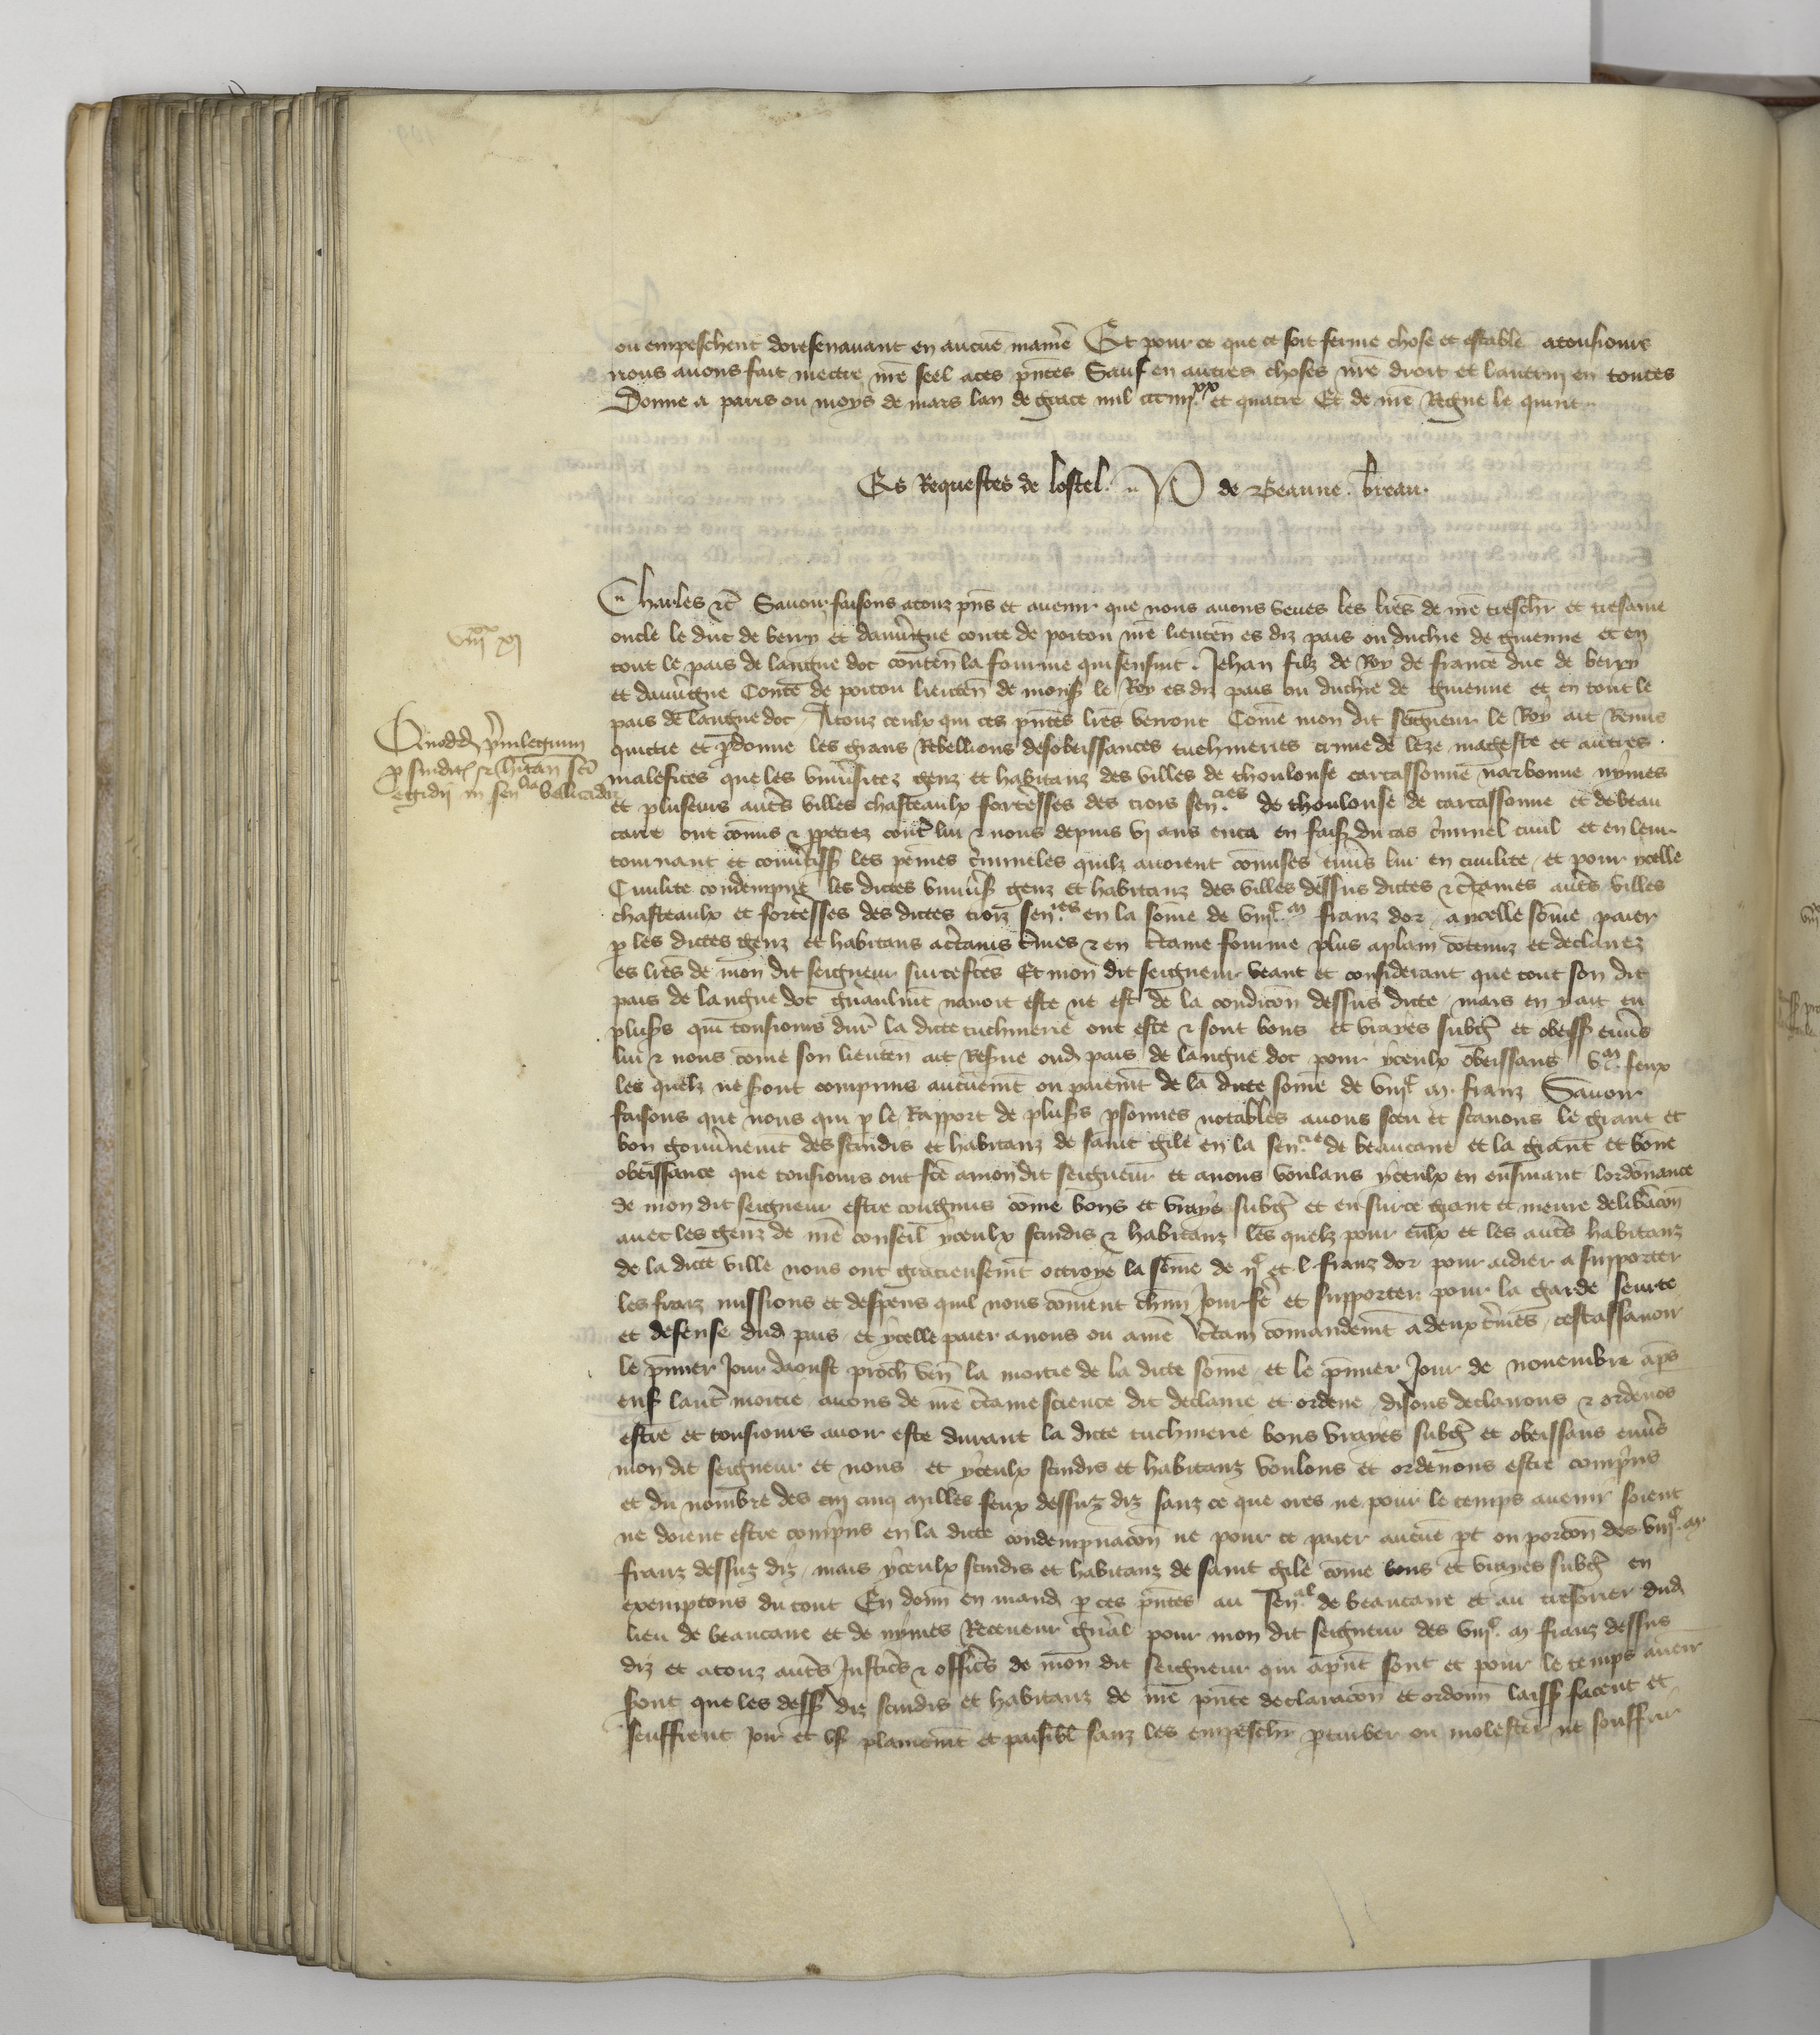 ou empeschent doresenavant en aucune maniere Et pour ce que ce soit ferme chose et estable atousiours
nous avons fait mectre nre seel a ces pntes Sauf en autres choses nre droit et lautruy en toutes
Donne a paris ou moys de mars lan de grace mil ccciiijxx et quatre Et de nre Regne le quint
Es Requestes de lostel de Beaune. breau.
Charles etc Savoir faisons a touz pns et avenir que nous avons veues les lres de nre treschr et tresame
oncle le duc de berry et dauvergne conte de poitou nre lieuten es diz pais ou duchie de guienne et en
tout le pais de langue doc conten la fourme qui sensuit. Jehan filz de Roy de france duc de berry
et dauvergne Conte de poitou lieuten de mons le Roy es diz pais ou duchie de guienne et en tout le
pais de langue doc Atouz ceulx qui ces pntes lres verront Come mon dit seigneur le Roy ait Remis
quictie et pdonne les grans Rebellions desobeissances tuchineries crime de leze mageste et autres
malefices que les universitez genz et habitanz des villes de thoulouse carcassonne narbonne nymes
et pluseurs autres villes chasteaulx forteresses des trois sencies de thoulouse de carcassonne et de beau
caire ont comis et ppetrez contre lui et nous depuis vj ans enca en fais du cas criminel civil et en leur
tournant et convtiss les peines crimineles quilz avoient comises envers lui en civilite et pour ycelle
Civilite condempne les dictes univers genz et habitanz des villes dessus dictes et ctaines autres villes
chasteaulx et forteresses des dictes trois senies en la some de viijc m franz dor a ycelle some paier
p les dictes genz et habitans a ctains tmes et en ctaine fourme plus a plain contenuz et declairez
es lres de mon dit seigneur sur ce fctes Et mon dit seigneur veant et considerant que tout son dit
pais de langue doc gnaulmt navoit este ne est de la condicion dessus dicte mais en y ait eu
pluss qui tousiours durt la dicte tuchinerie ont este et sont bons et vrayes subgs et obeiss envers
lui et nous come son lieuten ait Reserve oud pais de langue doc pour yceulx obeissans vm feux
les quelz ne sont comprins aucunemt ou paiemt de la dicte some de viijc m franz Savoir
faisons que nous qui p le Rapport de pluss psonnes notables avons sceu et scavons le grant et
bon gouvnemt des scindis et habitanz de saint gile en la sencie de beaucaire et la grant et bone
obeissance que tousiours ont fce a mon dit seigneur et a nous voulans yceulx en ensuiant lordonnance
de mon dit seigneur estre congnus come bons et vrays subgs et eu sur ce grant et meure delibacon
avec les genz de nre conseil yceulx scindis et habitanz les quelz pour eulx et les autres habitanz
de la dicte ville nous ont gracieusemt octroye la some de ijc et l franz dor pour aidier a supporter
les fraiz missions et despens quil nous convient chun jour fe et supporter pour la garde seurte
et defense dud pais et ycelle paier a nous ou a nre ctain comandemt a deux tmes cestassavoir
le pmier Jour daoust proch ven la moitie de la dicte some et le pmier Jour de novembre aps
ens laut moitie avons de nre ctaine science dit declaire et ordene disons declairons et ordenos
estre et tousiours avoir este durant la dicte tuchinerie bons vrayes subgs et obeissans envers
mon dit seigneur et nous et yceulx scindis et habitanz voulons et ordenons estre comprins
et du nombre des cinq milles feux dessuz diz sanz ce que ores ne pour le temps avenir soient
ne doient estre comprins en la dicte condempnacon ne pour ce paier aucune pt ou porcon des viijc m
franz dessuz diz mais yceulx scindis et habitanz de saint gile come bons et vrayes subgs en
exemptons du tout En donn en mand p ces pntes au Senal de beaucaire et au tresorier dud
lieu de beaucaire et de nymes Receveur gnal pour mon dit seigneur des viijc m franz dessus
diz et a touz autres Justics et offics de mon dit seigneur qui apnt sont et pour le temps avenir
sont que les dess diz scindis et habitanz de nre pnte declaracon et ordonn laiss facent et
seuffrent joir et us plainemt et paisibl sanz les empeschr ptuber ou molester ne souffrir
viijxx xj
Quoddam privilegium
p sindicis et habitan sci
egidij in senlla bellicadri